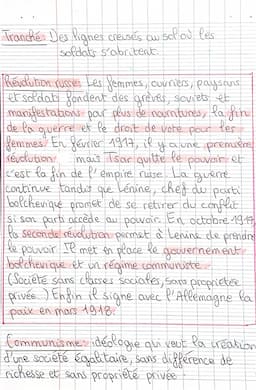 Tranchée: Des lignes creusés au sol où les
soldats s'abritent.
Révolution russe: Les femmes, ouvriers, paysans
et soldats fondent des grèves, soviets et
manifestations par plus de nourritures, la fin
de la guerre et le droit de vote pour les
femmes. En février 1917, il y a une première
révolution mais Tsar quitte le pouvoir et
c'est la fin de l'empire russe. La guerre
continue tandis que Lénine, chef du parti
bolchevique promet de se retirer du conflit
si son parti accède au pouvoir. En octobre 1917,
la seconde révolution permet à Lénine de prendre
le pouvoir. Il met en place le gouvernement
bolchevique et un régime communiste.
(Société sans classes sociales, sans propriétée
privée.) Enfin il signe avec l'Allemagne la
paix en mars 1918.
Communisme: idéologie qui veut la création
d'une société égalitaire, sans différence de
richesse et sans propriété privée.